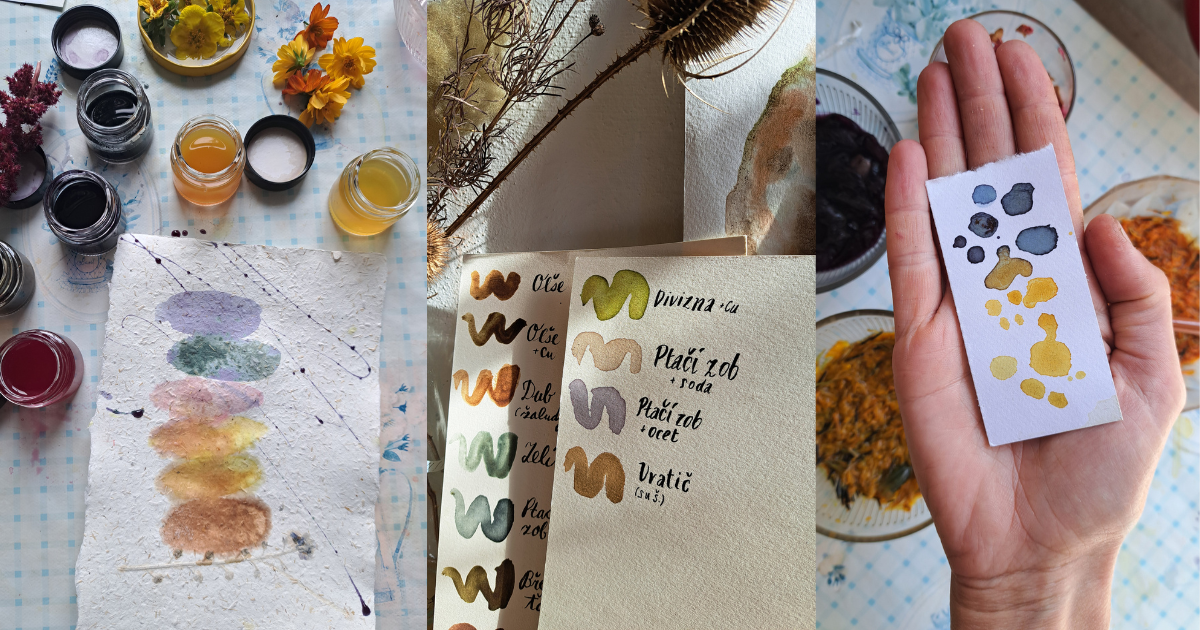 Olše
Olše
+ Cu
Dub
Ptač
zob
Divizna + Cu
Ptačí zob
+ soda
Ptačí zob
+ ocet
Vratič
(suš.)